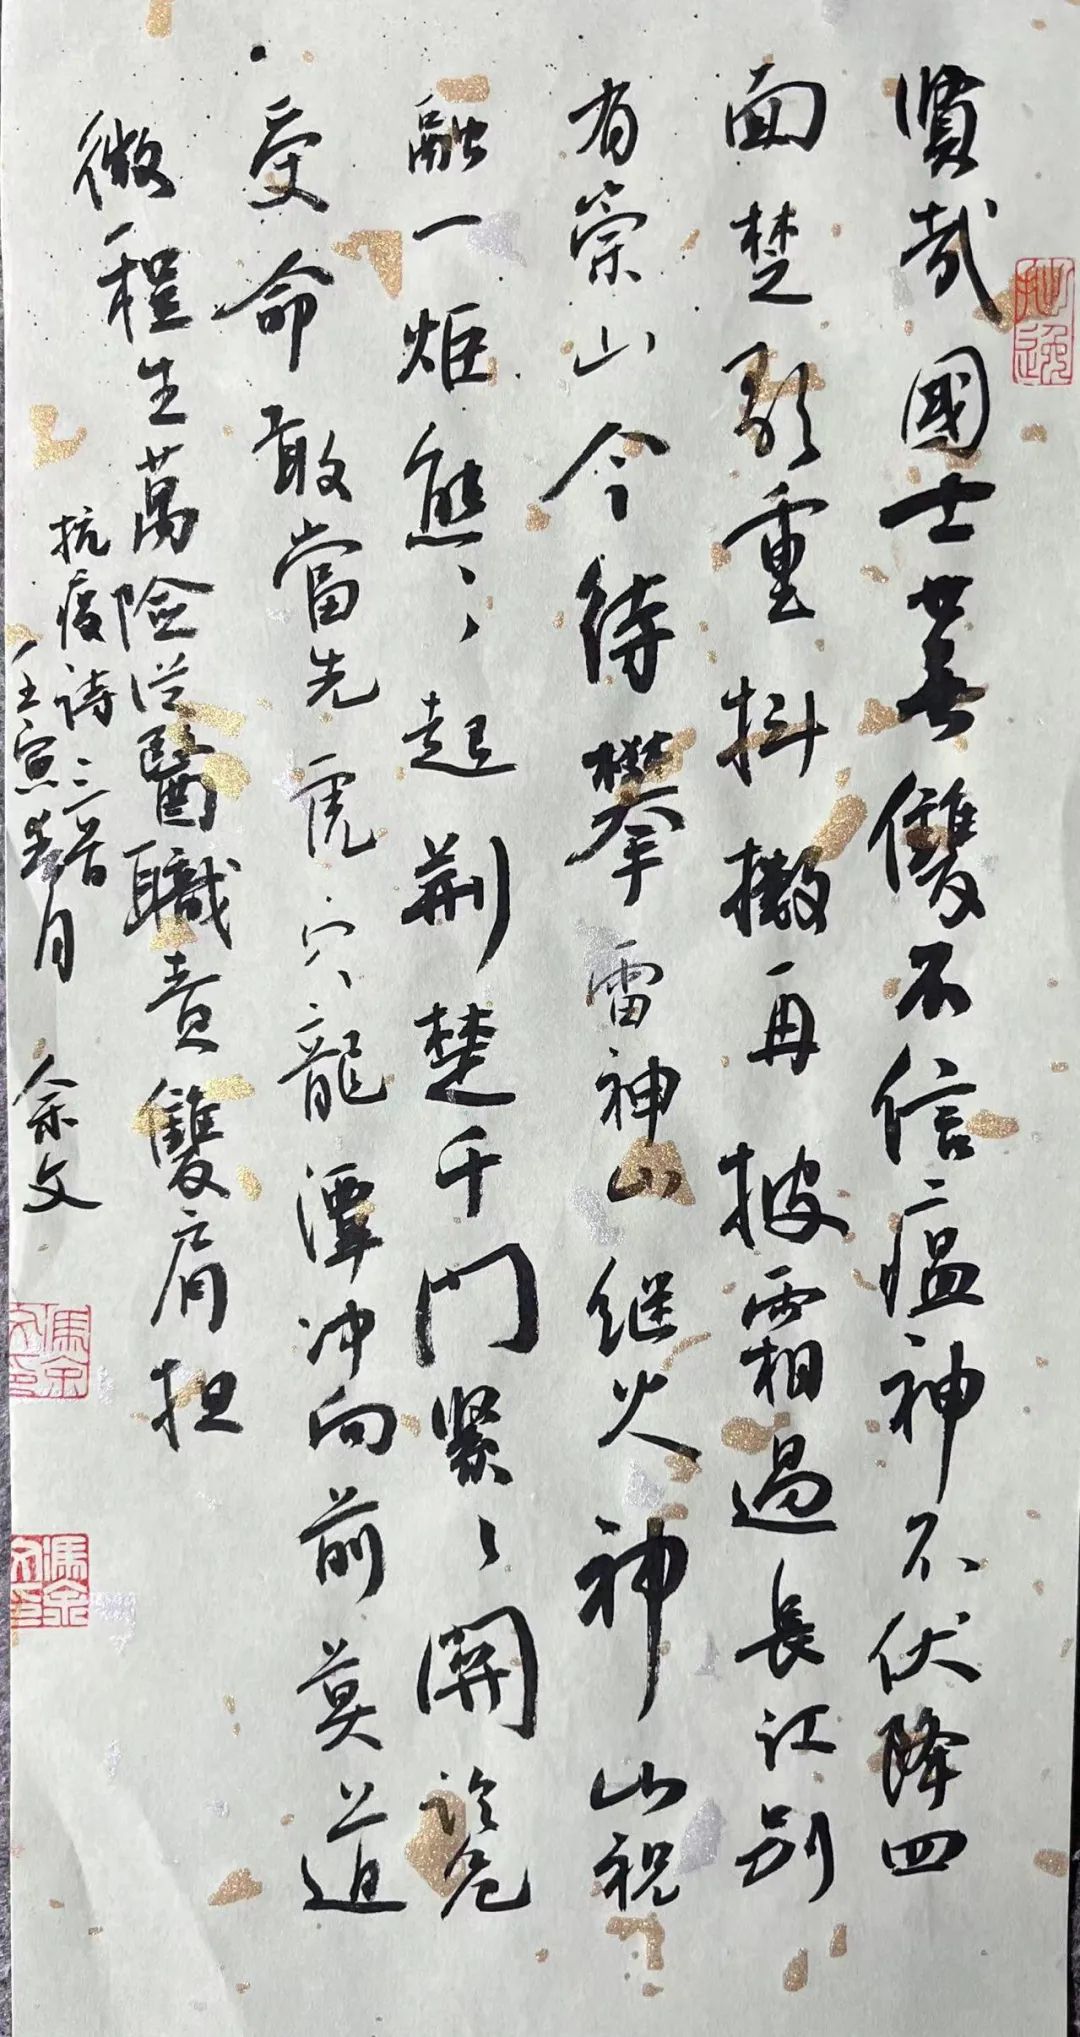 賢哉國士世無雙不信瘟神不伏降四
面楚歌重抖擻再披霜相過長江別
有崇山今待攀雷神山继火神山祝
融一炬熊々起荆楚千門緊々開說危
受命敢當先虎穴龍潭冲向前莫道
微程生萬險從醫職責雙肩担
抗疫诗三首
壬寅春月 余文